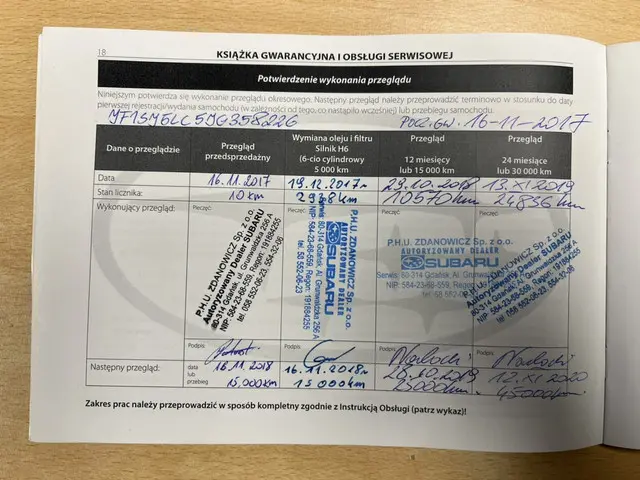 18
KSIĄŻKA GWARANCYJNA I OBSŁUGI SERWISOWEJ
Potwierdzenie wykonania przeglądu
Niniejszym potwierdza się wykonanie przeglądu okresowego. Następny przegląd należy przeprowadzić terminowo w stosunku do daty
pierwszej rejestracji/wydania samochodu (w zależności od tego, co nastąpiło wcześniej) lub przebiegu samochodu.
POCZ. GW. 16-11-2017
Dane o przeglądzie
Przegląd
przedsprzedażny
Wymiana oleju i filtru
Silnik H6
(6-cio cylindrowy
5 000 km
Przegląd
12 miesięcy
lub 15 000 km
Przegląd
24 miesiące
lub 30 000 km
Data
16.11.2017
19.12.2017r
29.10.2018
13.XI 2019
Stan licznika:
10 km
2938km
10570km
24856km
Wykonujący przegląd:
Pieczęć:
Pieczęć:
Pieczęć:
Pieczęć:
P.H.U. ZDANOWICZ Sp. z o.o.
Autoryzowany Dealer SUBARU
80-314 Gdańsk, ul. Grunwaldzka 256 A
NIP: 584-23-68-559, region: 191884255
tel. 058 552-06-23, 554-32-06
P.H.U. ZDANOWICZ Sp. z o.o.
AUTORYZOWANY DEALER
SUBARU
Serwis: 80-314 Gdańsk, Al. Grunwaldzka 256 A
NIP: 584-23-68-559, Regon: 191884255
tel. 58 552-06-23
P.H.U. ZDANOWICZ Sp. z o.o.
AUTORYZOWANY DEALER
SUBARU
Serwis: 80-314 Gdańsk, Al. Grunwaldzka 256 A
NIP: 584-23-68-559, Regon: 191884255
tel. 58 552-06-23
P.H.U. ZDANOWICZ Sp. z o.o.
Autoryzowany Dealer SUBARU
Podpis:
Podpis:
Podpis:
Podpis:
Następny przegląd:
data
lub
przebieg
16.11.2018
15.000km
16.11.2018r
15000km
28.10.2019
25000km
12.XI 2020
45000km
Zakres prac należy przeprowadzić w sposób kompletny zgodnie z Instrukcją Obsługi (patrz wykaz)!